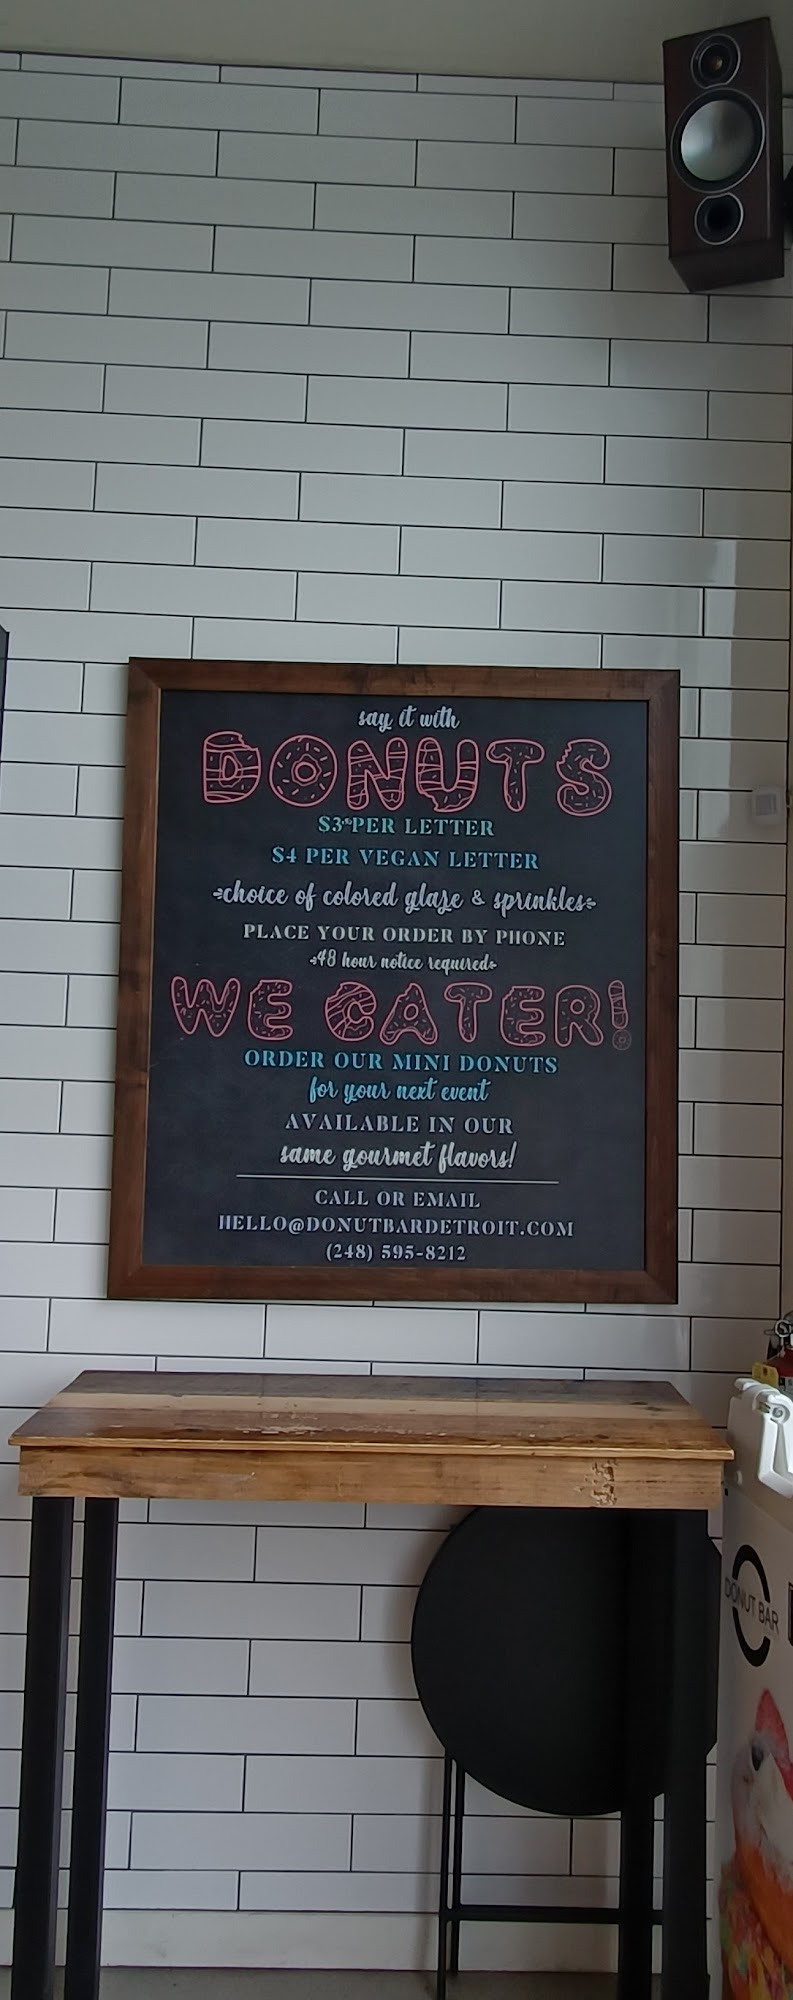 say it with
DONUTS
PER LETTER
$4 PER VEGAN LETTER
choice of colored glaze & sprinkles
PLACE YOUR ORDER BY PHONE
48 hour notice required
WE CATER!
ORDER OUR MINI DONUTS
for your next event
AVAILABLE IN OUR
same gourmet flavors!
CALL OR EMAIL
HELLO@DONUTBARDETROIT.COM
(248) 595-8212
DONUT BAR